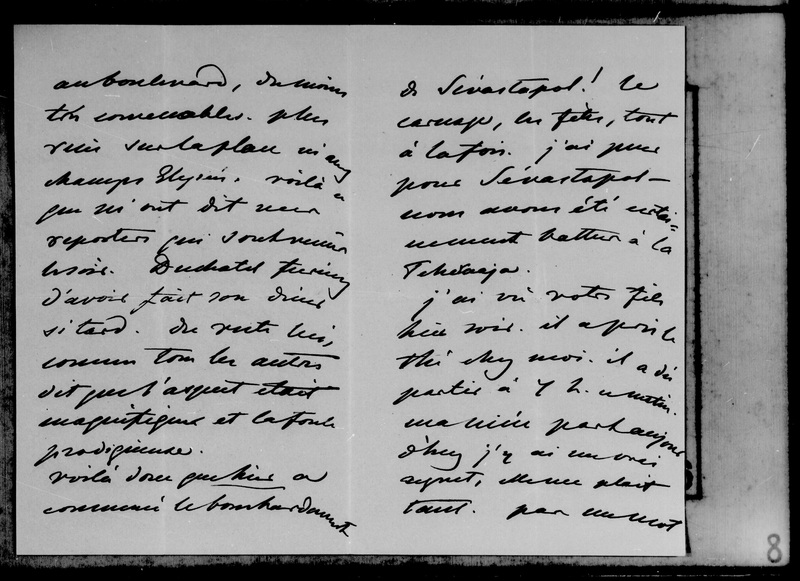 au boulevard, du moins
très convenables. plus
rien sur la place ni aux
champs Elysées. voilà ce
que m'ont dit mes
reporters qui sont venus
le soir. Duchatel furieux
d'avoir fait son diner
si tard. du reste lui,
comme tous les autres
dit que l'aspect etait
magnifique et la foule
prodigieuse.
voilà donc que hier a
commencé le bombardement
de Sévastopol! le
carnage, les fêtes, tout
à la fois. j'ai peur
pour Sévastopol –
nous avons été certai=
nement battus à la
Tchernaja.
j'ai vu votre fils
hier soir. il a pris le
thé chez moi. il a dû
partir à 7 h. ce matin.
ma nièce part aujour
d'huy j'y ai un vrai
regret, elle me plait
tant. par un mot
8